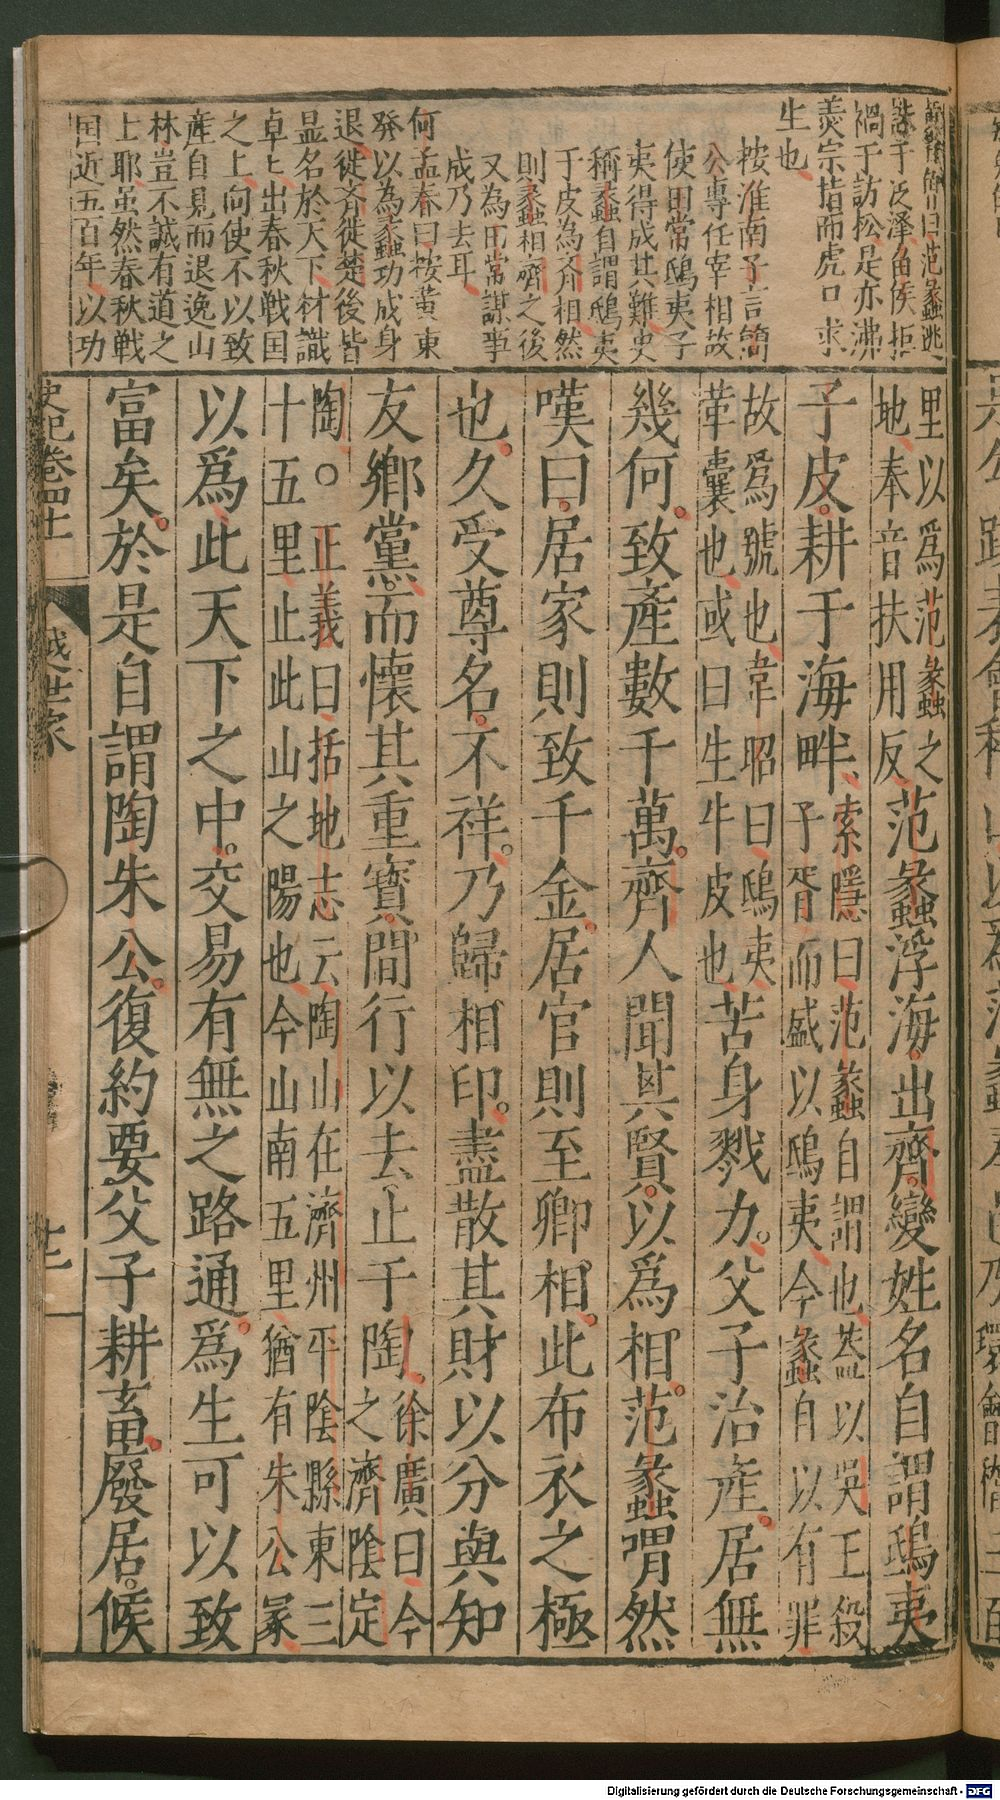 誅于泛澤角侯拒
禍于訪松是亦沸
羙宗指而虎口求
生也
按淮南子言簡
公專任宰相故
使田常鴟夷子
夷得成其難史
稱蠡自謂鴟夷
于皮為齐相然
則蠡相齊之後
又為田常謀事
成乃去耳
何孟春曰按黃東
發以為蠡功成身
退徙齐徙楚後皆
显名於天下材識
卓七出春秋戦囯
之上向使不以致
産自見而退逸山
林豈不誠有道之
上耶虽然春秋戦
囯近五百年以功
里以爲范蠡之
地奉音扶用反
范蠡浮海。出齊。變姓名自謂鴟夷
子皮。耕于海畔、
索隱曰范蠡自謂也葢以吳王殺
子胥而盛以鴟夷今蠡自以有罪
故爲號也、韋昭曰鴟夷
革囊也、或曰生牛皮也、
苦身戮力。父子治產。居無
幾何。致產數千萬。齊人聞其賢。以爲相。范蠡喟然
嘆曰。居家則致千金。居官則至卿相。此布衣之極
也。久受尊名。不祥。乃歸相印。盡散其財以分與知
友鄉黨。而懷其重寶。間行以去。止于陶、
徐廣曰今
之濟陰定
陶。○正義曰括地志云陶山在濟州平陰縣東三
十五里止此山之陽也今山南五里猶有朱公冢
以爲此天下之中。交易有無之路通。爲生可以致
富矣。於是自謂陶朱公。復約要父子耕畜。廢居。候
史記卷四十一
越世家
十二
Digitalisierung gefördert durch die Deutsche Forschungsgemeinschaft - DFG